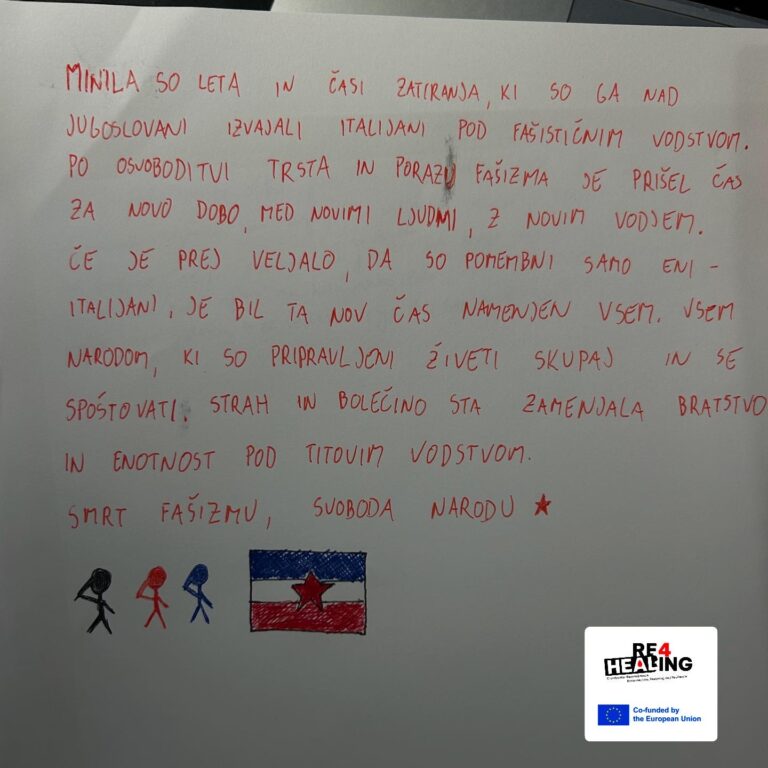 MINILA SO LETA IN ČASI ZATIRANJA, KI SO GA NAD
JUGOSLOVANI IZVAJALI ITALIJANI POD FAŠISTIČNIM VODSTVOM.
PO OSVOBODITVI TRSTA IN PORAZU FAŠIZMA JE PRIŠEL ČAS
ZA NOVO DOBO, MED NOVIMI LJUDMI, Z NOVIM VODJEM.
ČE JE PREJ VELJALO, DA SO POMEMBNI SAMO ENI -
ITALIJANI, JE BIL TA NOV ČAS NAMENJEN VSEM. VSEM
NARODOM, KI SO PRIPRAVLJENI ŽIVETI SKUPAJ IN SE
SPOŠTOVATI. STRAH IN BOLEČINO STA ZAMENJALA BRATSTVO
IN ENOTNOST POD TITOVIM VODSTVOM.
SMRT FAŠIZMU, SVOBODA NARODU ★
RE4
HEALING
Co-funded by
the European Union